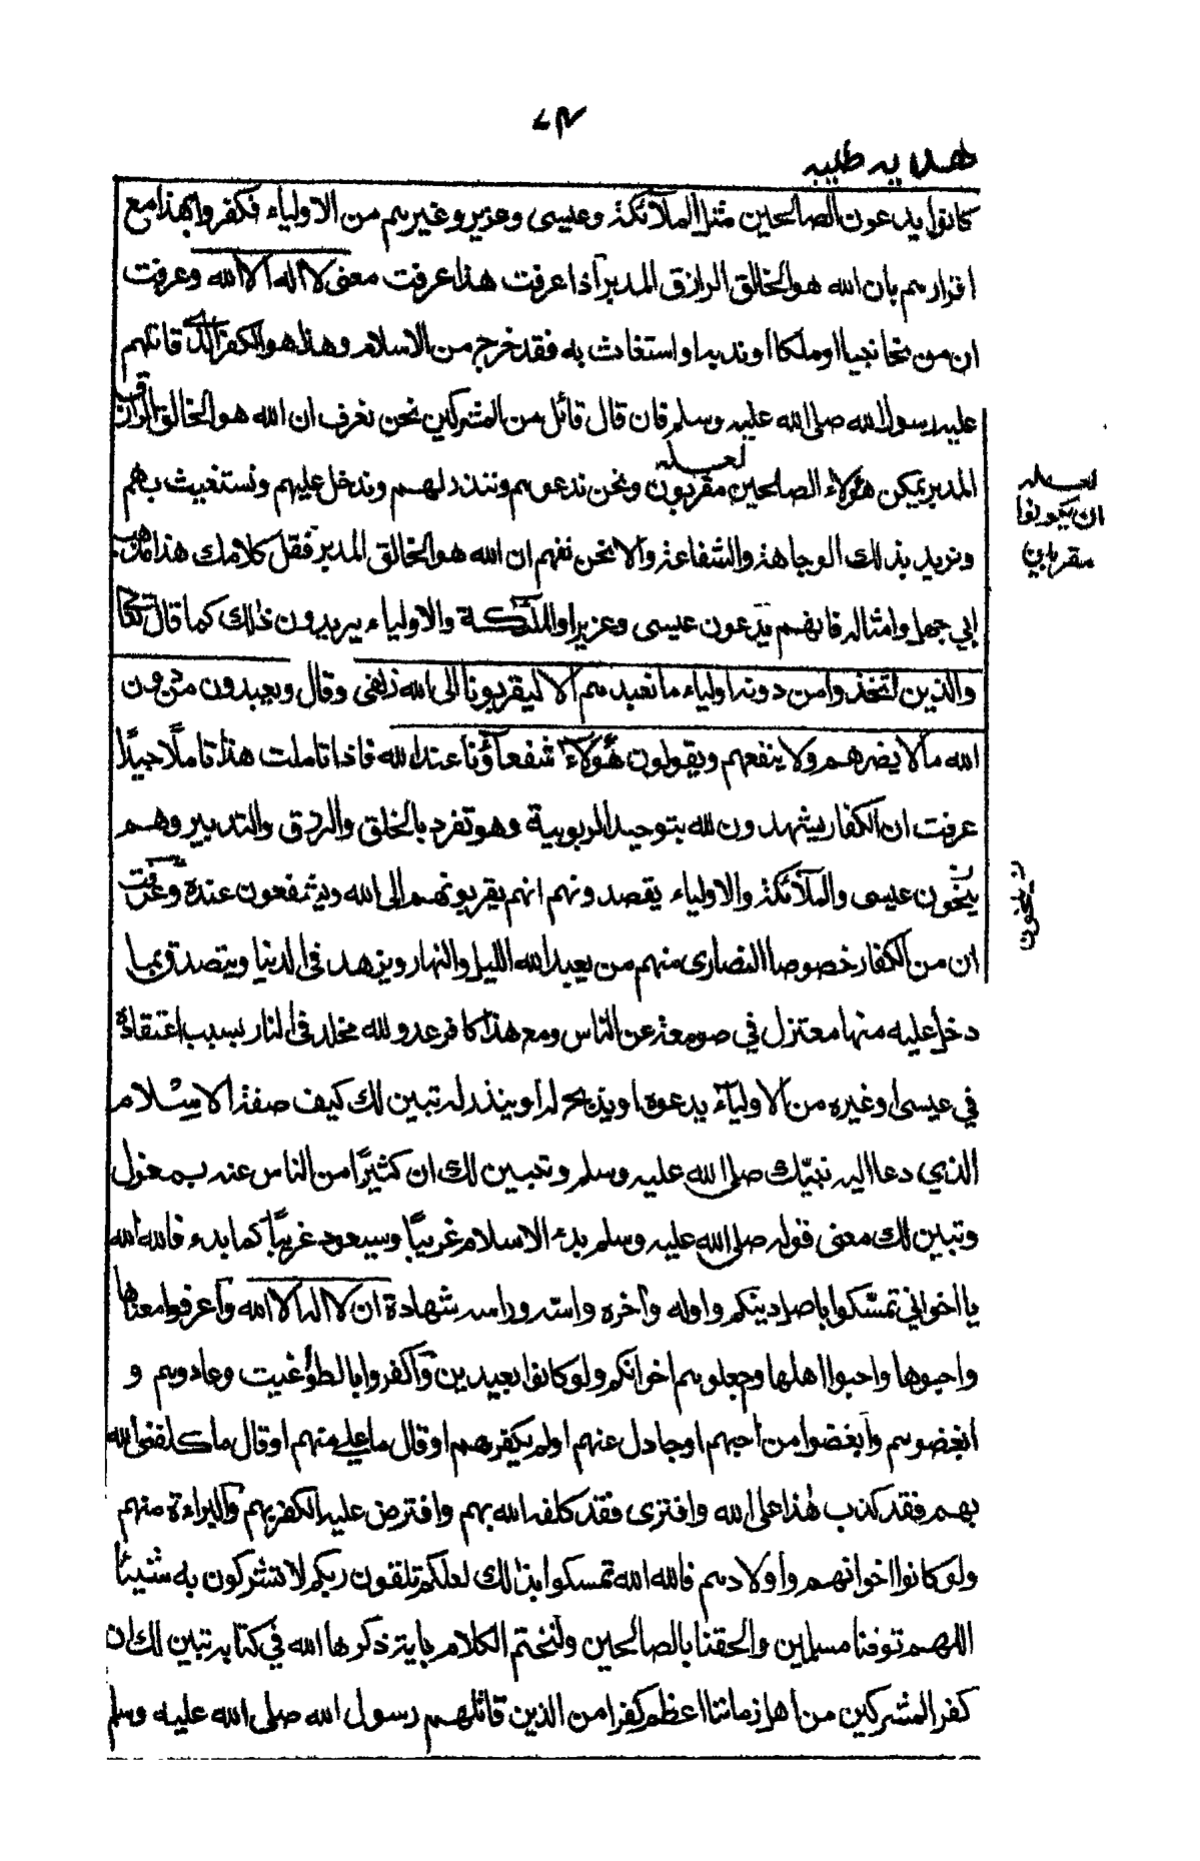 ٧٣
هدايه طيبه
كانوا يدعون الصالحين مثل الملآئكة وعيسى وعزير وغيرهم من الاولياء فكفروا بهذا مع
اقرارهم بان الله هو الخالق الرازق المدبر اذا عرفت هذا عرفت معنى لا اله الا الله وعرفت
ان من نخا نبيا او ملكا او ندبه او استغاث به فقد خرج من الاسلام وهذا هو الكفر الذي قاتلهم
عليه رسول الله صلى الله عليه وسلم فان قال قائل من المشركين نحن نعرف ان الله هو الخالق الرازق
المدبر يمكن هؤلاء الصالحين مقربون ونحن ندعوهم وننذر لهم وندخل عليهم ونستغيث بهم
لعله
ونريد بذلك الوجاهة والشفاعة والا نحن نفهم ان الله هو الخالق المدبر فقل كلامك هذا مذهب
ابي جهل وامثاله فانهم يدعون عيسى وعزيرا والملئكة والاولياء يريدون ذلك كما قال تعالى
والذين اتخذوا من دونه اولياء ما نعبدهم الا ليقربونا الى الله زلفى وقال ويعبدون من دون
الله ما لا يضرهم ولا ينفعهم ويقولون هؤلاء شفعآؤنا عند الله فاذا تاملت هذا تاملًا جيدًا
عرفت ان الكفار يشهدون لله بتوحيد الربوبية وهو تفرد بالخلق والرزق والتدبير وهم
ينخون عيسى والملآئكة والاولياء يقصدونهم انهم يقربونهم الى الله ويشفعون عنده وعرفت
ان من الكفار خصوصا النصارى منهم من يعبد الله الليل والنهار ويزهد في الدنيا ويتصدق بما
دخل عليه منها معتزل في صومعة عن الناس ومع هذا كافر عدو لله مخلد في النار بسبب اعتقاده
في عيسى او غيره من الاوليآء يدعوه او يذبح له او ينذر له تبين لك كيف صفة الاسلام
الذي دعا اليه نبيّك صلى الله عليه وسلم وتبين لك ان كثيرًا من الناس عنه بمعزل
وتبين لك معنى قوله صلى الله عليه وسلم بدء الاسلام غريبًا وسيعود غريبًا كما بدء فالله الله
يا اخواني تمسّكوا باصل دينكم واوله وآخره واسّه وراسه شهادة ان لا اله الا الله واعرفوا معناها
واحبوها واحبوا اهلها وجعلوهم اخوانكم ولو كانوا بعيدين واكفروا بالطواغيت وعادوهم و
ابغضوهم وابغضوا من احبهم او جادل عنهم او لم يكفرهم او قال ما علي منهم او قال ما كلفني الله
بهم فقد كذب هذا على الله وافترى فقد كلفه الله بهم وافترض عليه الكفر بهم والبراءة منهم
ولو كانوا اخوانهم واولادهم فالله الله تمسكوا بذلك لعلكم تلقون ربكم لا تشركون به شيئًا
اللهم توفنا مسلمين والحقنا بالصالحين ولنختم الكلام باية ذكرها الله في كتابه تبين لك ان
كفر المشركين من اهل زماننا اعظم كفرا من الذين قاتلهم رسول الله صلى الله عليه وسلم
لعله
ان يكونوا
مقربين
ينخون